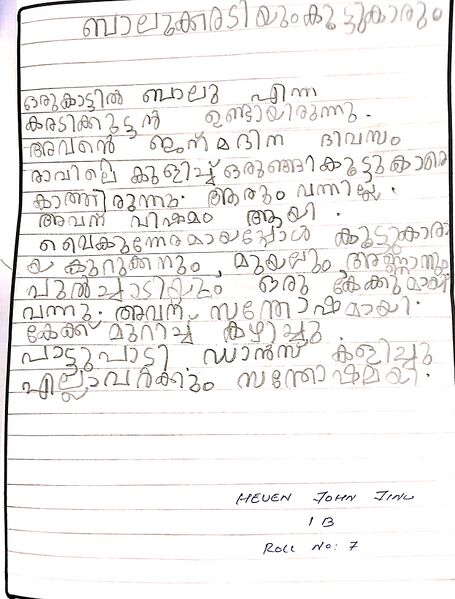 ബാലുക്കരടിയുംകൂട്ടുകാരും
ഒരുകാട്ടിൽ ബാലു എന്ന
കരടിക്കുട്ടൻ ഉണ്ടായിരുന്നു.
അവൻ്റെ ജന്മദിന ദിവസം
രാവിലെ കുളിച്ച് ഒരുങ്ങി കൂട്ടുകാരെ
കാത്തിരുന്നു. ആരും വന്നില്ല.
അവന് വിഷമം ആയി.
വൈകുന്നേരമായപ്പോൾ കൂട്ടുകാരാ
യ കുറുക്കനും, മുയലും, അണ്ണാനും
പുൽച്ചാടിയും ഒരു കേക്കുമായി
വന്നു. അവന് സന്തോഷമായി.
കേക്ക് മുറിച്ച് കഴിച്ചു.
പാട്ടുപാടി. ഡാൻസ് കളിച്ചു
എല്ലാവർക്കും സന്തോഷമയി.
HEVEN JOHN JINU
1 B
ROLL NO: 7